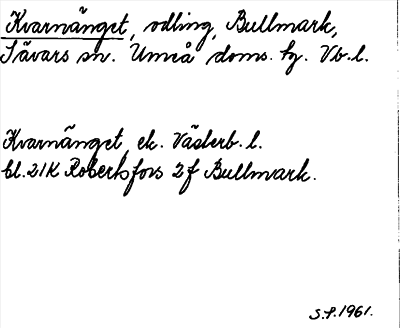 Kvarnänget, odling, Bullmark,
Sävars sn. Umeå doms. tg. Vb. l.
Kvarnänget, ek. Västerb. l.
bl. 21K Robertsfors 2f Bullmark.
S.P. 1961.